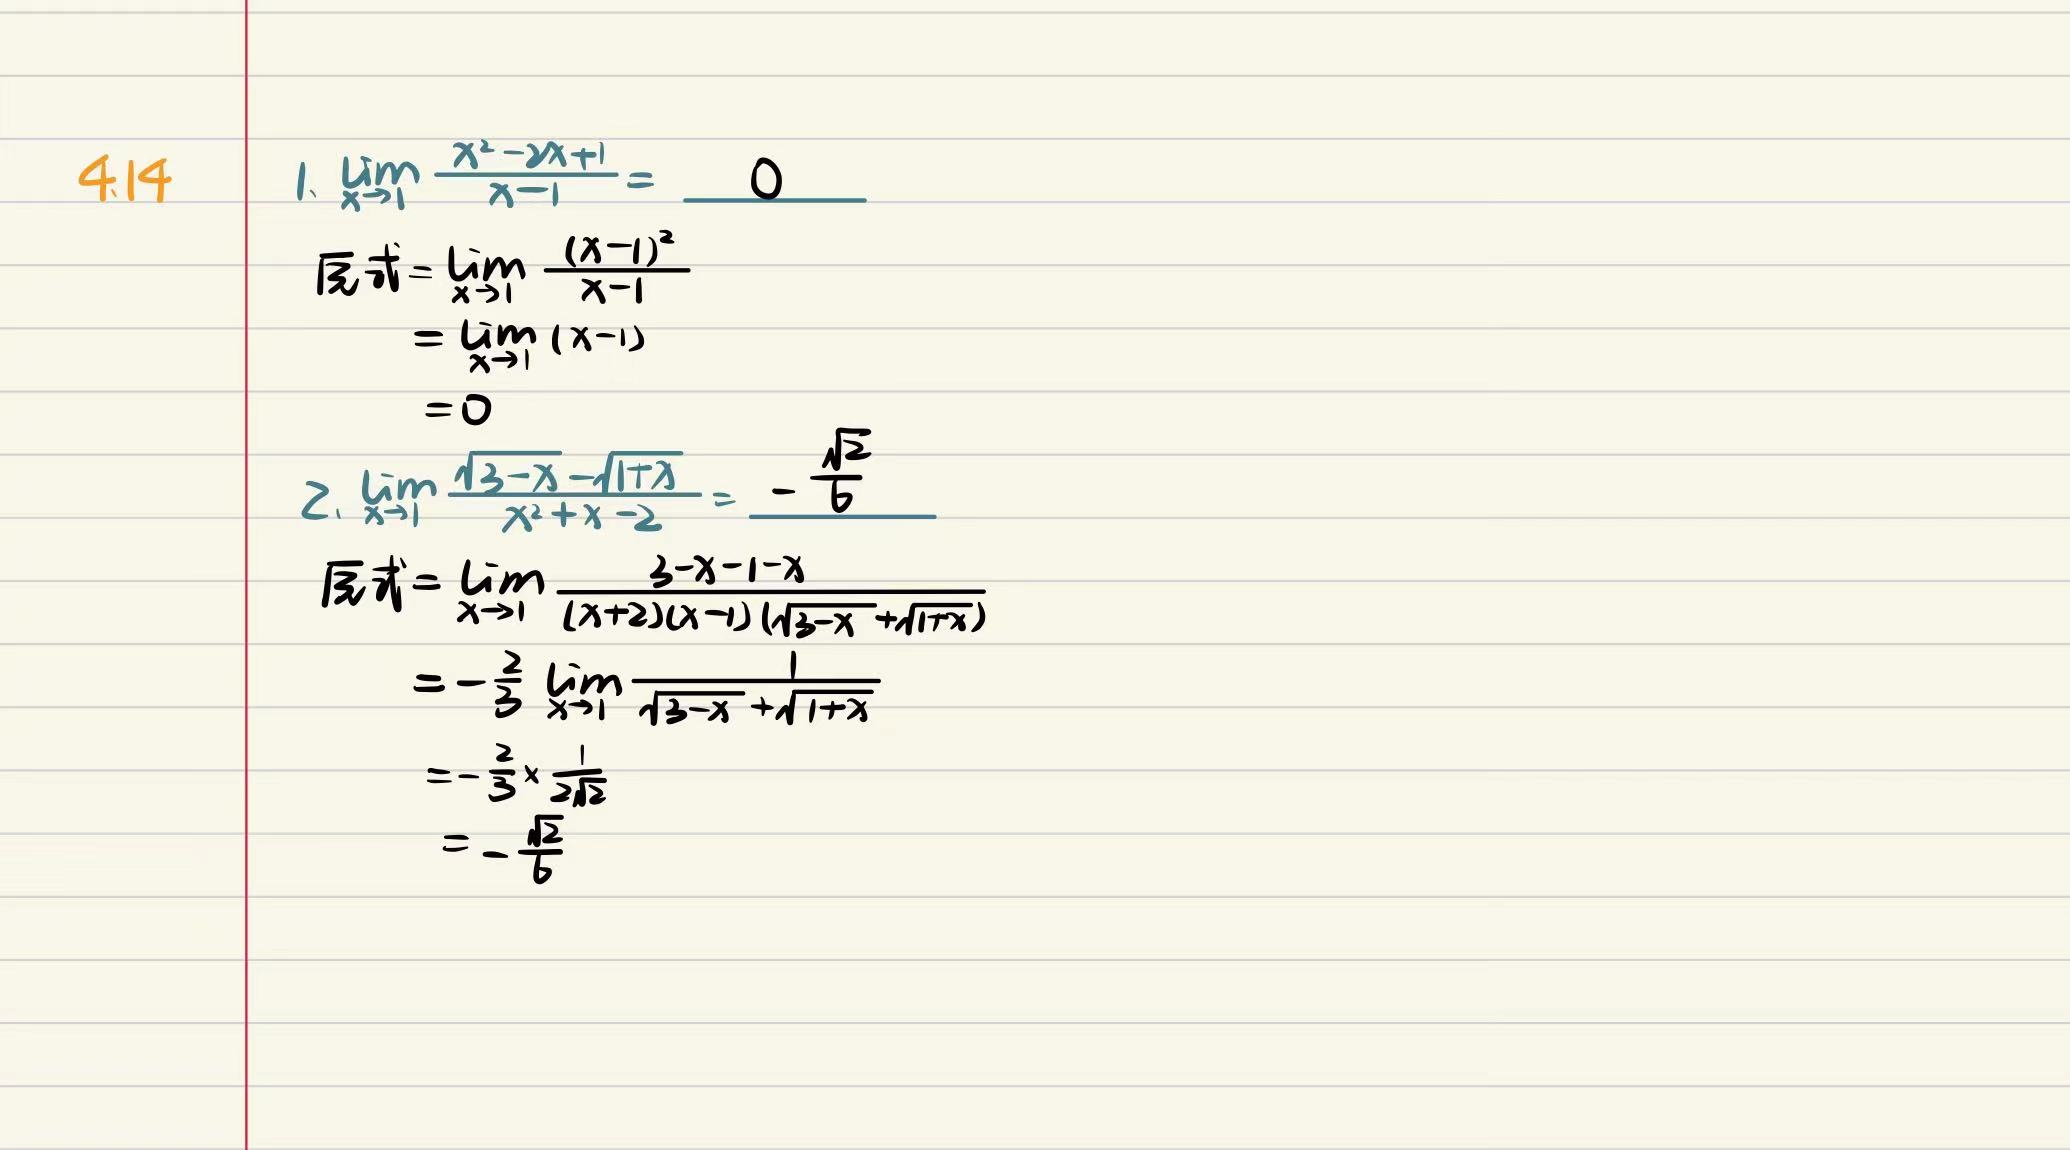 4.14
1、lim_{x→1} (x²-2x+1)/(x-1) = 0
原式 = lim_{x→1} (x-1)²/(x-1)
= lim_{x→1} (x-1)
= 0
2、lim_{x→1} (√(3-x) - √(1+x))/(x²+x-2) = -√2/6
原式 = lim_{x→1} (3-x-1-x)/((x+2)(x-1)(√(3-x)+√(1+x)))
= -2/3 lim_{x→1} 1/(√(3-x)+√(1+x))
= -2/3 × 1/(2√2)
= -√2/6